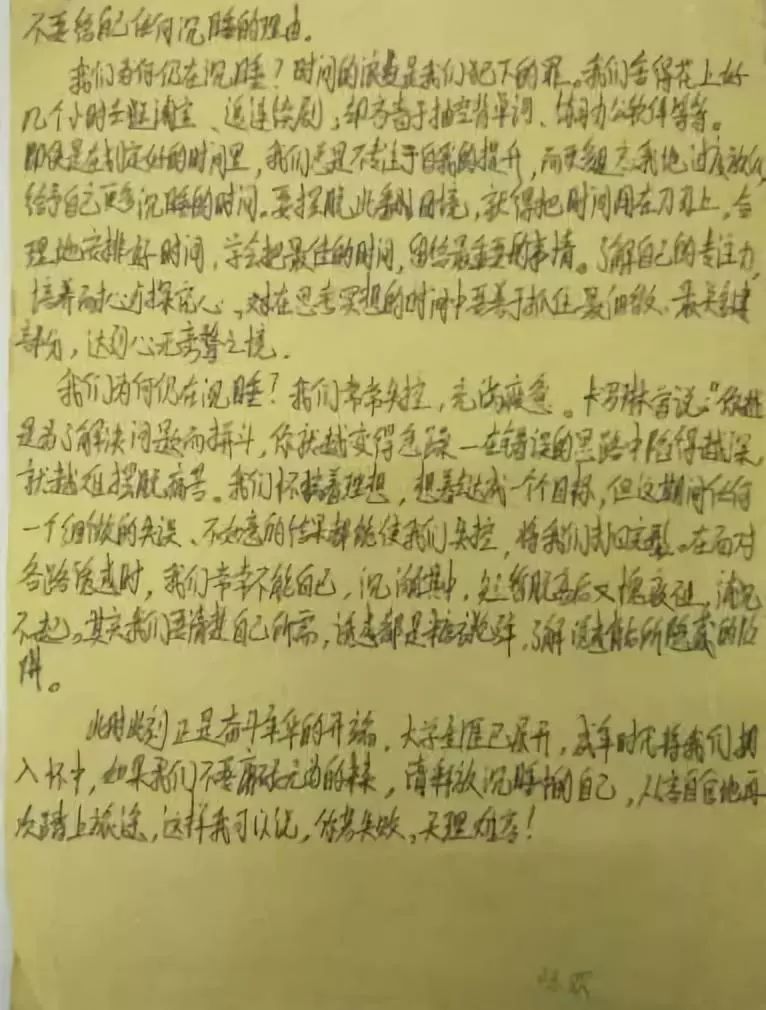 不要给自己任何沉睡的理由。
我们为何仍在沉睡？时间的浪费是我们犯下的罪。我们舍得花上好
几个小时去逛淘宝、追连续剧，却吝啬于抽空背单词、练习办公软件等等。
即使是在制定好的时间里，我们总是不专注于自我的提升，而更多
给予自己更多沉睡的时间。要摆脱此番困境，就得把时间用在刀刃上。合
理地安排好时间，学会把最佳的时间，留给最重要的事情。了解自己的专注力，
培养耐心与探究心，在思考冥想的时间中要善于抓住最细微、最关键
部分，达到心无旁骛之境。
我们为何仍在沉睡？我们常常失控，充满疲惫。卡罗琳曾说："你越
是为了解决问题而拼斗，你就越变得急躁—在错误的思路中陷得越深，
就越难摆脱痛苦。我们怀揣着理想，想着达成一个个目标，但这期间任何
一个细微的失误、不如意的结果都能使我们失控，将我们击回。在面对
各路诱惑时，我们常常不能自已，沉湎其中，短暂脱离后又
不起。其实我们要清楚自己所需，诱惑都是，了解诱惑背后所隐藏的陷
阱。
此时此刻正是奋斗年华的开端，大学画卷已展开，成年时光将我们拥
入怀中，如果我们不要碌碌无为的未来，请释放沉睡中的自己，从容自信地再
次踏上旅途，这样我可以说，你若失败，天理难容！